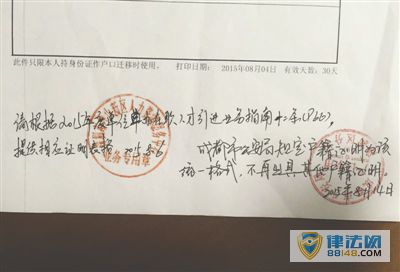 此件只限本人持身份证作户口迁移时使用。 打印日期: 2015年08月04日 有效天数: 30天
请根据2015年度单位 人才引进业务指南 (P60),
提供相应证明表格 2015.8.6
成都市公安局规定户籍证明为该
统一格式,不再出具其他户籍证明。
2015年8月14日
业务专用章
律法网
88148.COM